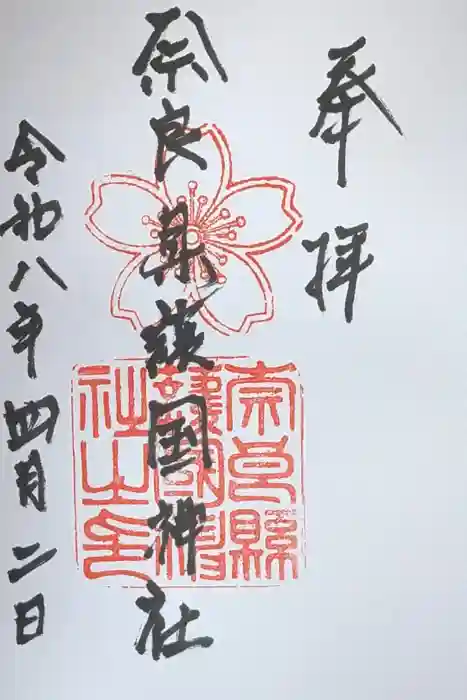 奉拝
奈良県護国神社
奈良縣護國神社之印
令和八年四月二日